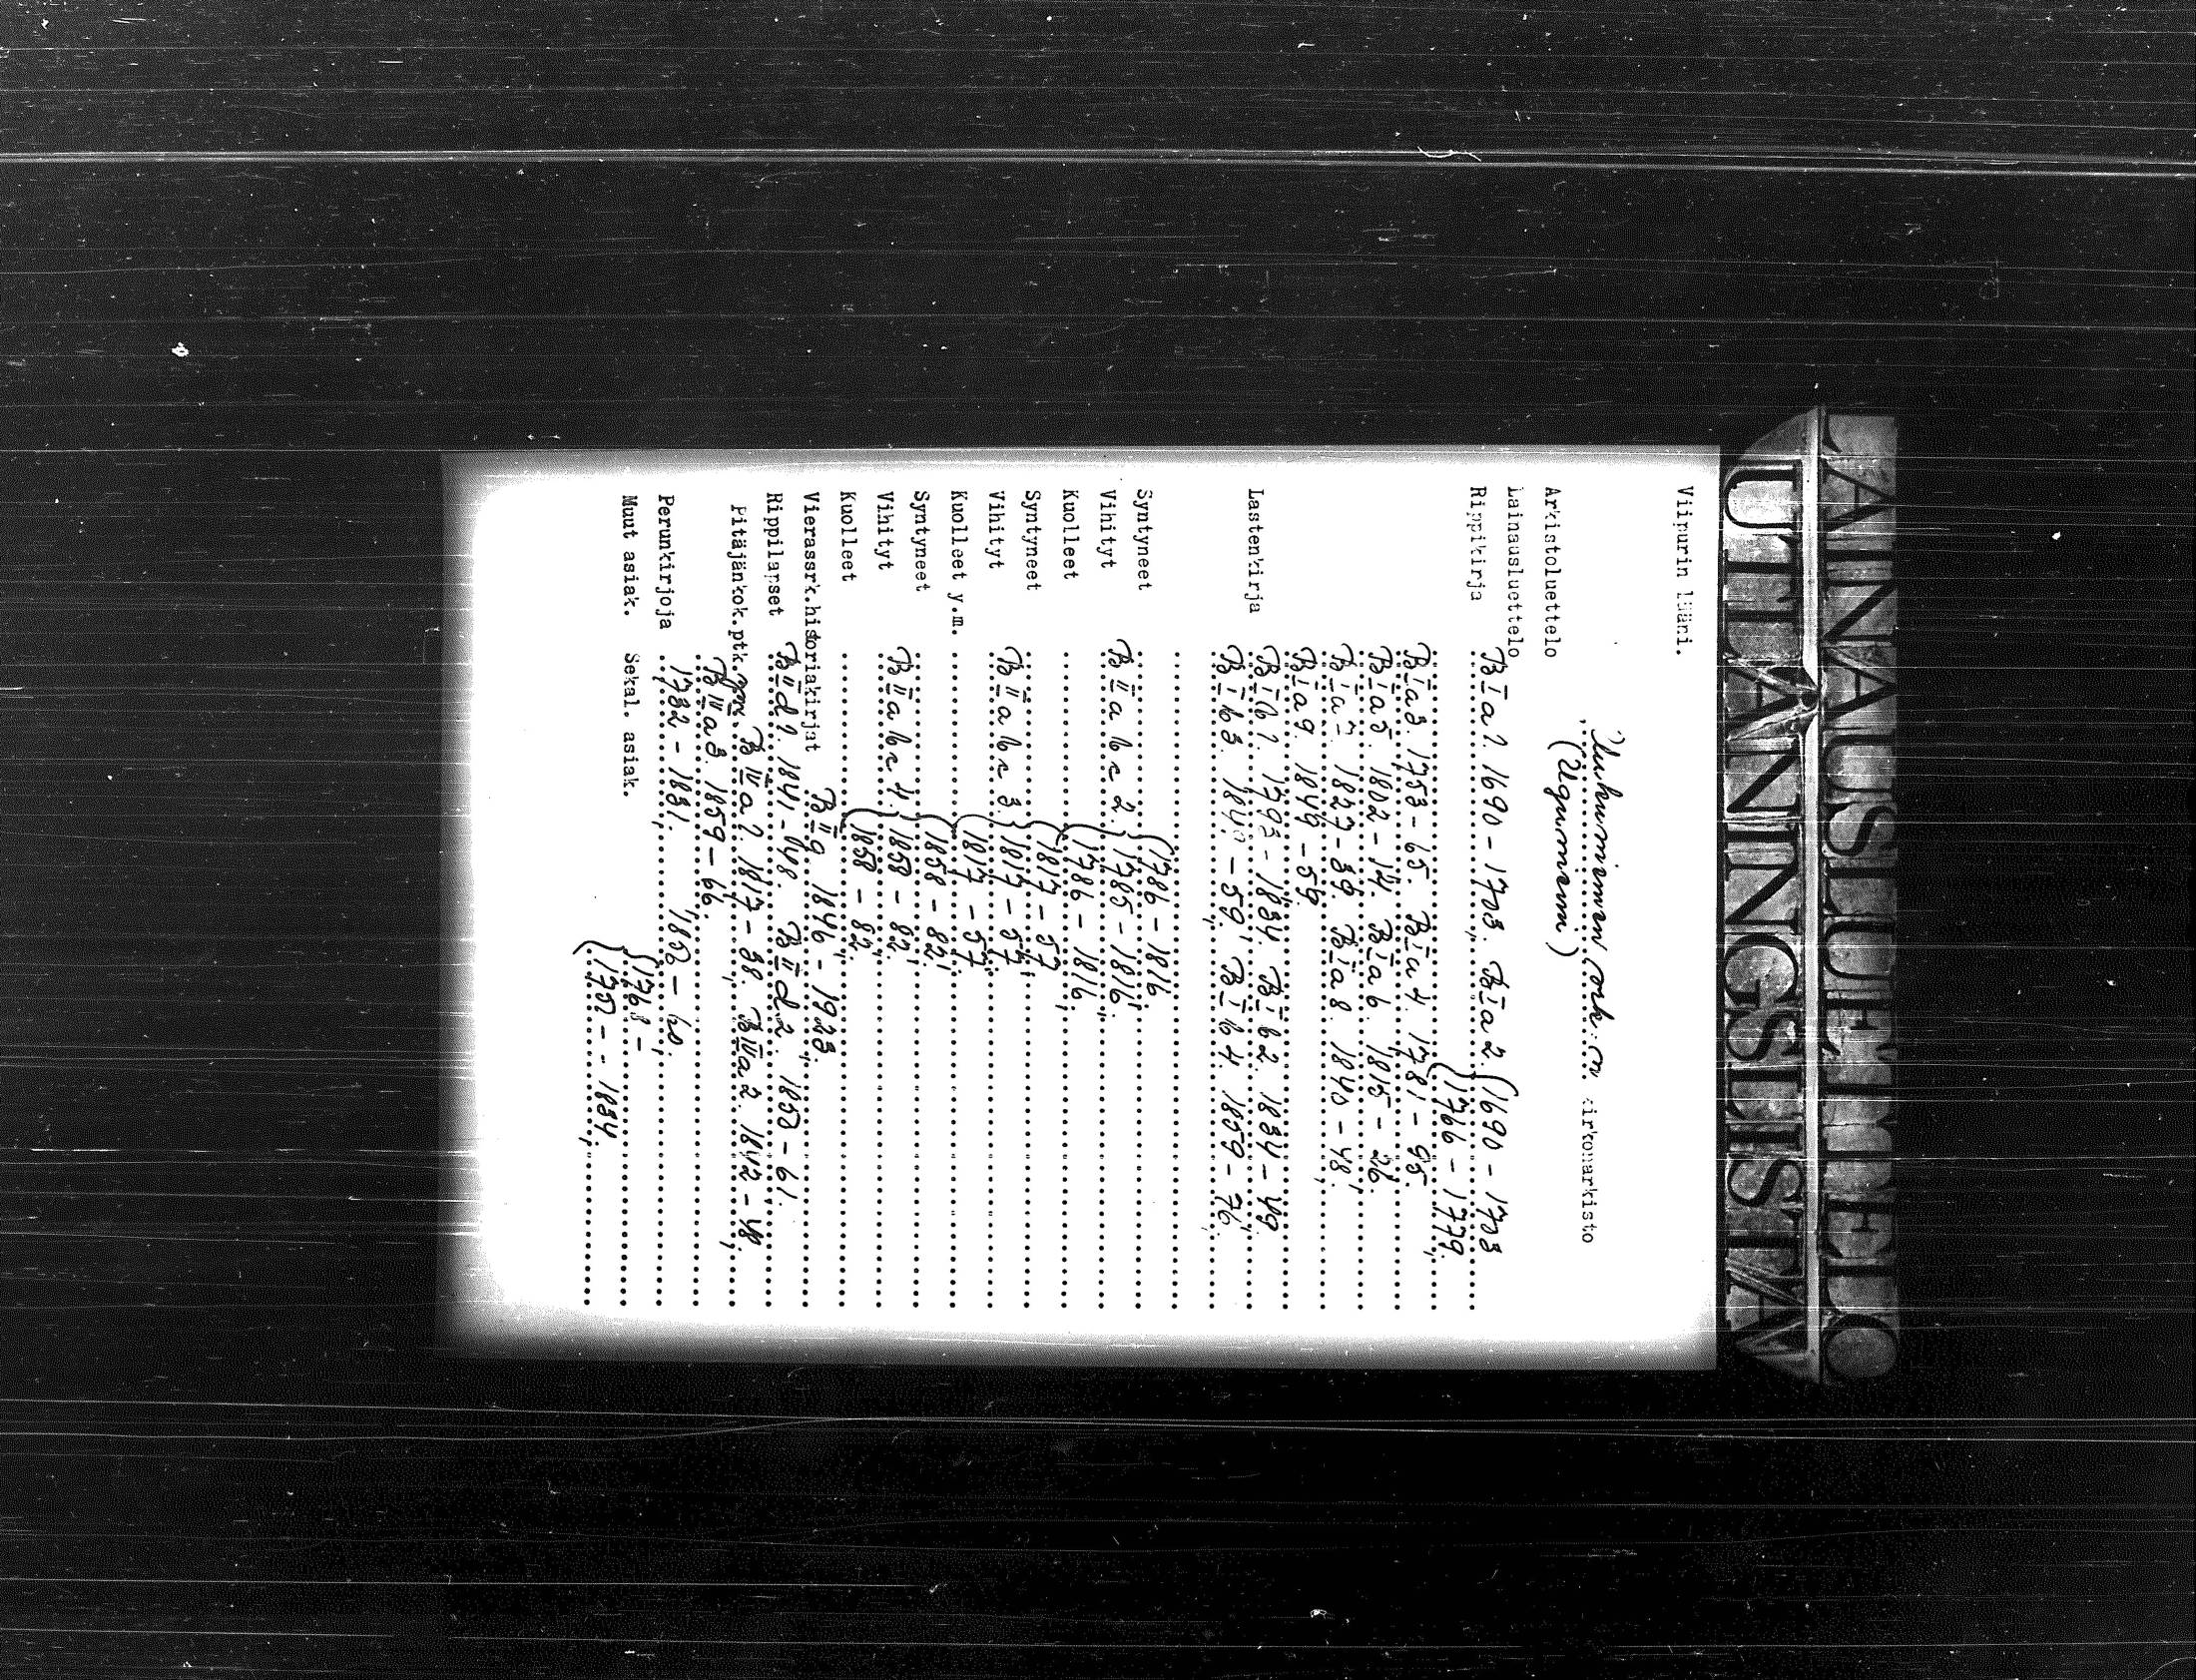 LAINAUSLUETTELO
UTLÅNINGSLISTA
Viipurin lääni.
Uukuniemen srk:n kirkonarkisto
(Uguniemi)
Arkistoluettelo
Lainausluettelo
Rippikirja B I a 1. 1690 - 1703. B I a 2 (1690 - 1703
(1766 - 1779.
B I a 3. 1753 - 65. B I a 4. 1781 - 95.
B I a 5. 1802 - 14. B I a 6. 1815 - 26.
B I a 7. 1827 - 39. B I a 8. 1840 - 48.
B I a 9. 1849 - 59.
Lastenkirja B I b 1. 1793 - 1834. B I b 2. 1834 - 49.
B I b 3. 1849 - 59. B I b 4. 1859 - 76.
Syntyneet (1786 - 1816.
Vihityt B II a b c 2. (1785 - 1816.
Kuolleet (1786 - 1816.
Syntyneet (1817 - 57
Vihityt B II a b c 3. (1817 - 57.
Kuolleet y.m. (1817 - 57
Syntyneet (1858 - 82.
Vihityt B II a b c 4. (1858 - 82.
Kuolleet (1858 - 82.
Vierassrk.historiakirjat B II g. 1846 - 1923.
Rippilapset B II d 1. 1841 - 48. B II d 2. 1853 - 61.
Pitäjänkok.ptk. ym. B IV a 1. 1817 - 38. B IV a 2. 1842 - 48.
B IV a 3. 1859 - 66.
Perunkirjoja 1782 - 1831. 1852 - 60.
Muut asiak. Sekal. asiak. (1768 -
(1757 - - 1834.